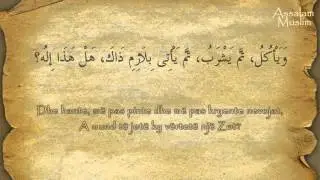 Assalam
Muslim
وَيَأْكُلُ، ثُمَّ يَشْرَبُ، ثُمَّ يَأْتِى بِلَازِمِ ذَاكَ، هَلْ هَذَا إِلَهُ؟
Dhe hante, më pas pinte dhe më pas kryente nevojat,
A mund të jetë ky vërtetë një Zot?